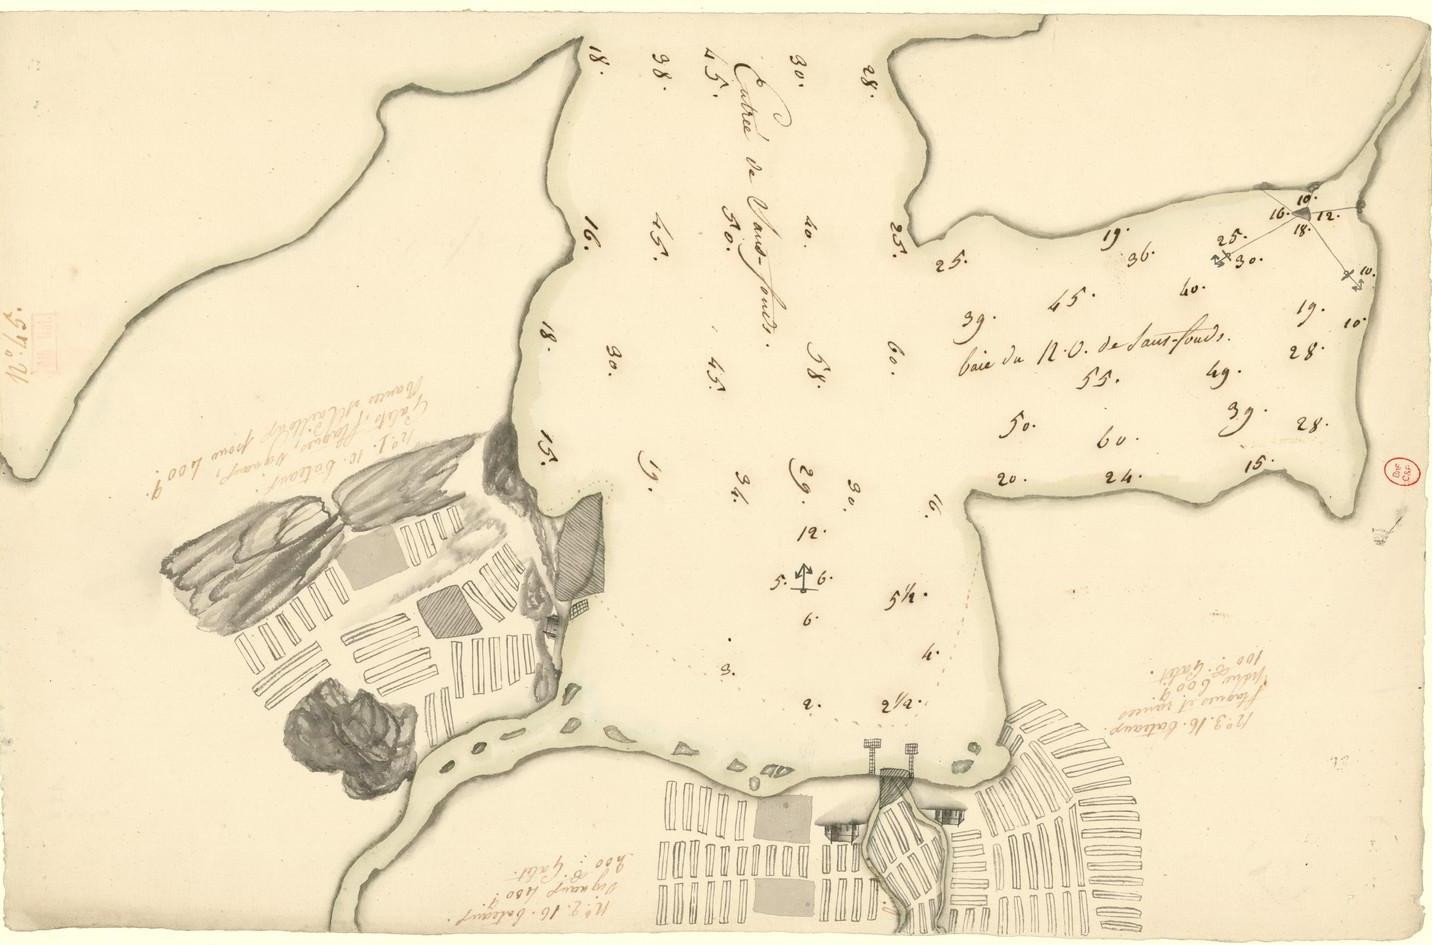 18. 38. 45. 30. 28.
Entrée de Sans-fonds.
16. 45. 50. 40. 25.
18. 30. 45. 58. 60.
15. 19. 34. 29. 30. 16.
12.
5. 6.
6. 5½.
3. 4.
2. 2½.
10.
16. 12.
18.
25. 19. 36. 25. 30. 10.
39. 45. 40. 19. 10.
baie du N.O. de Sans-fonds.
55. 49. 28.
50. 60. 39. 28.
20. 24. 15.
N.º 45.
n.º 1. 10. bateaux.
Galets, vignaux,
rances et
pour 400 q.
n.º 2. 16. bateaux.
Vignaux 480 q.
200: B. Galet.
n.º 3. 16. bateaux.
flaques et rances
600 q.
100: B. Galet.
BnF
C&P